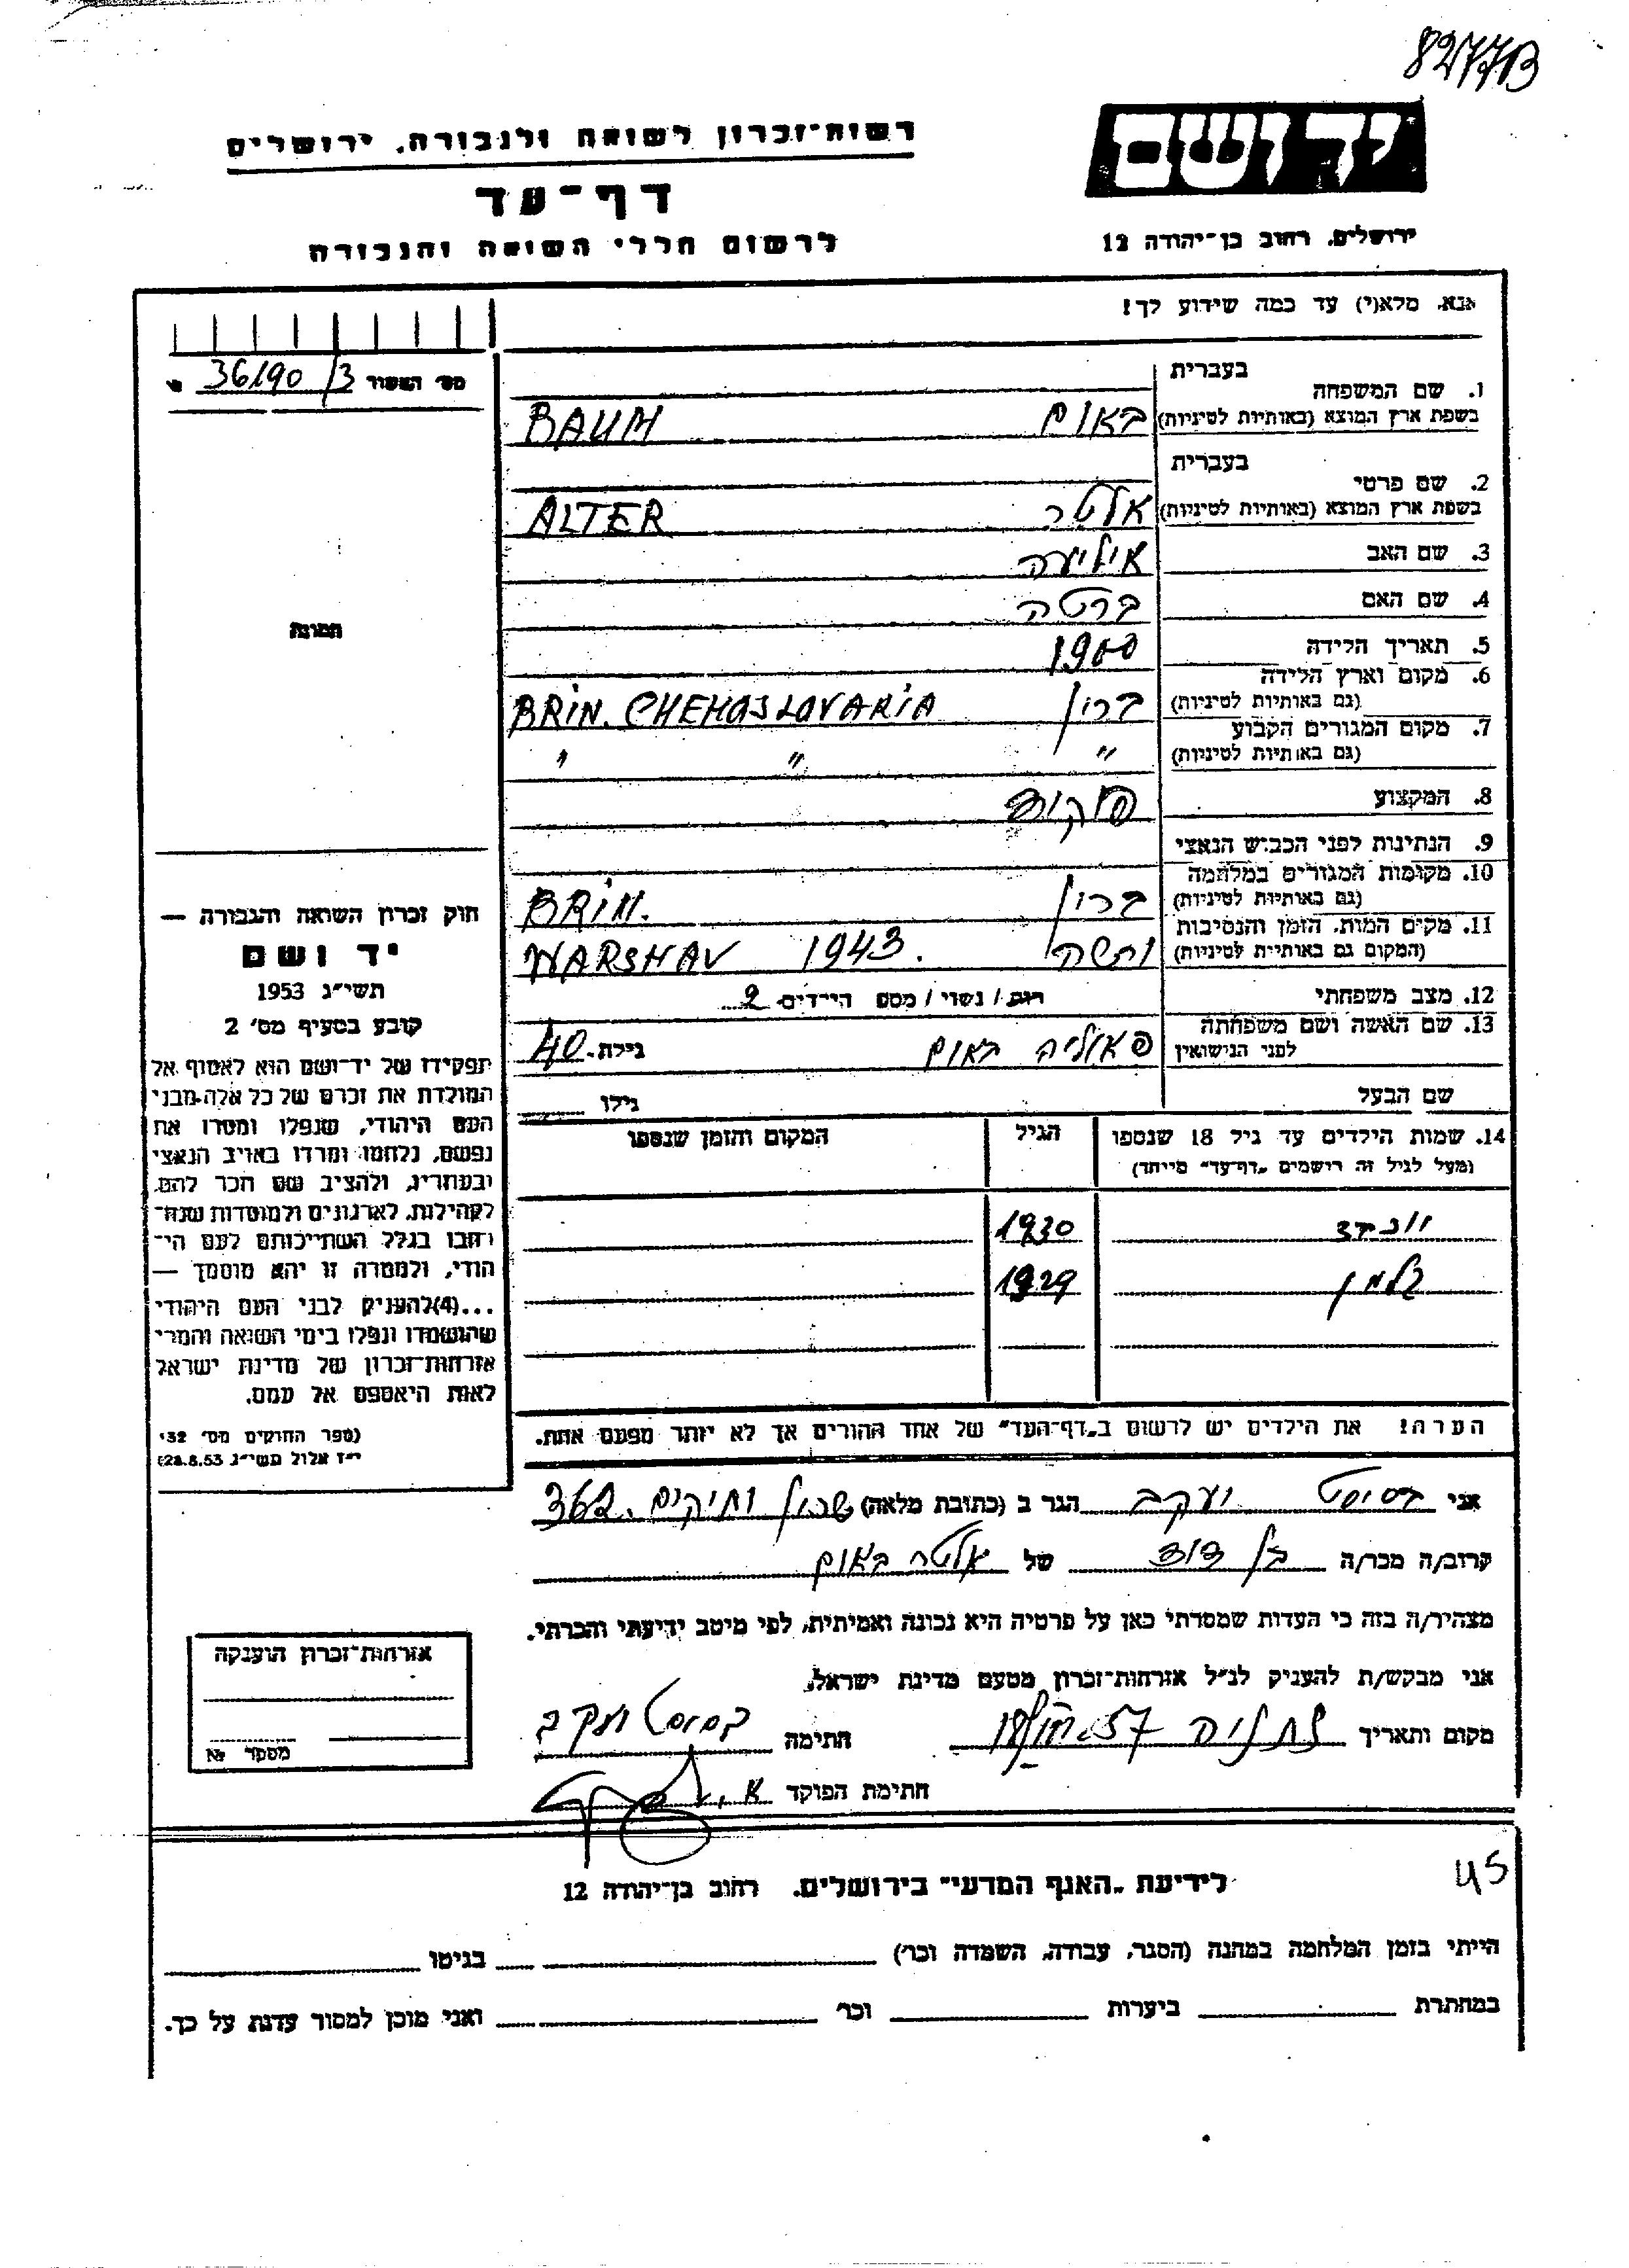 8277B
יד ושם
רשות-זכרון לשואה ולגבורה, ירושלים
דף-עד
לרשום חללי השואה והגבורה
ירושלים, רחוב בן-יהודה 12
אנא, מלא(י) עד כמה שידוע לך!
מס' האשור 36190/3
בעברית
1. שם המשפחה
בשפת ארץ המוצא (באותיות לטיניות) באום BAUM
בעברית
2. שם פרטי
בשפת ארץ המוצא (באותיות לטיניות) אלטר ALTER
3. שם האב
4. שם האם ברטה
תמונה
5. תאריך הלידה 1900
6. מקום וארץ הלידה
(גם באותיות לטיניות) ברין BRIN. CHEHOSLOVAKIA
7. מקום המגורים הקבוע
(גם באותיות לטיניות) " " "
8. המקצוע פקיד
9. הנתינות לפני הכבוש הנאצי
10. מקומות המגורים במלחמה
(גם באותיות לטיניות) ברין BRIN.
11. מקום המות, הזמן והנסיבות
(המקום גם באותיות לטיניות) ורשה WARSHAV 1943.
12. מצב משפחתי רווק / נשוי / מספר הילדים 2
13. שם האשה ושם משפחתה
לפני הנישואין פאוליה באום גילה 40
שם הבעל גילו
14. שמות הילדים עד גיל 18 שנספו הגיל המקום והזמן שנספו
(מעל לגיל זה רישמים "דף-עד" מיוחד)
1930
זלמן 1929
הערה! את הילדים יש לרשום ב"דף-העד" של אחד ההורים אך לא יותר מפעם אחת.
חוק זכרון השואה והגבורה —
יד ושם
תשי"ג 1953
קובע בסעיף מס' 2
תפקידו של יד-ושם הוא לאסוף אל
המולדת את זכרם של כל אלה מבני
העם היהודי, שנפלו ומסרו את
נפשם, נלחמו ומרדו באויב הנאצי
ובעוזריו, ולהציב שם וזכר להם,
לקהילות, לארגונים ולמוסדות שנח-
רבו בגלל השתייכותם לעם הי-
הודי, ולמטרה זו יהא מוסמך —
...(4)להעניק לבני העם היהודי
שהושמדו ונפלו בימי השואה והמרי
אזרחות-זכרון של מדינת ישראל
לאות היאספם אל עמם.
(ספר החוקים מס' 132
י"ז אלול תשי"ג 28.8.53)
אני יעקב הגר ב (כתובת מלאה) שכון ותיקים. 362
קרוב/ה מכר/ה בן דוד של אלטר באום
מצהיר/ה בזה כי העדות שמסרתי כאן על פרטיה היא נכונה ואמיתית, לפי מיטב ידיעתי והכרתי.
אני מבקש/ת להעניק לנ"ל אזרחות-זכרון מטעם מדינת ישראל.
מקום ותאריך נתניה 57 חתימה יעקב
חתימת הפוקד
אזרחות-זכרון הוענקה
מספר №
45
לידיעת "האגף המדעי" בירושלים, רחוב בן-יהודה 12
הייתי בזמן המלחמה במחנה (הסגר, עבודה, השמדה וכו') בגיטו
במחתרת ביערות וכו' ואני מוכן למסור עדות על כך.